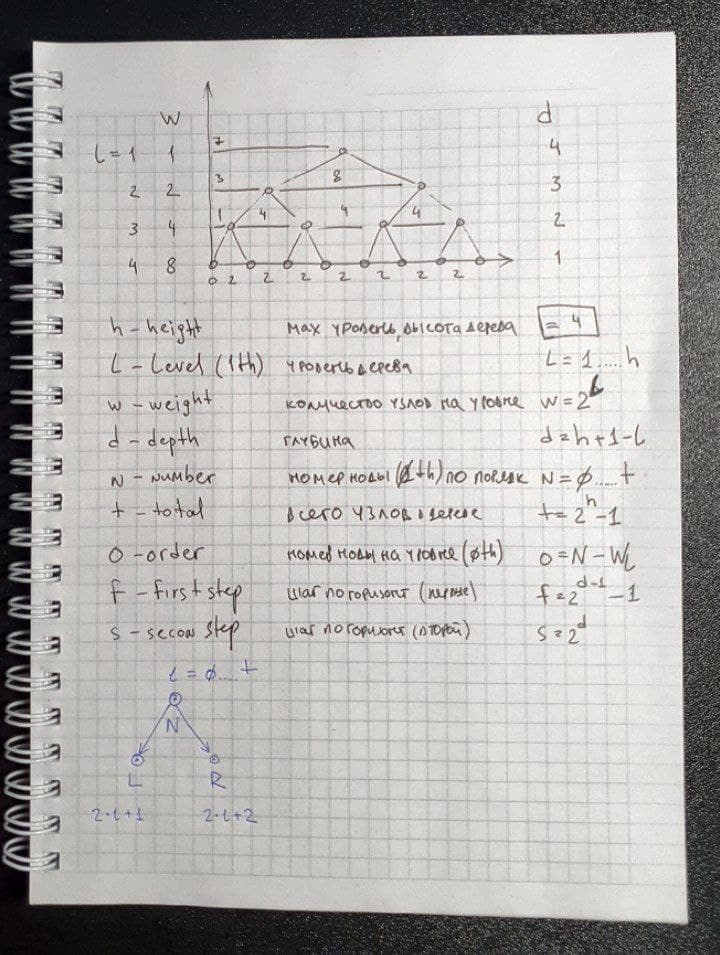 w d
L = 1 1 7 4
2 2 3 8 3
3 4 1 4 4 4 2
4 8 1
0 2 2 2 2 2 2 2
h - height мах уровень, высота дерева = 4
L - Level (1th) уровень дерева L = 1....h
w - weight количство узлов на уровне w = 2^L
d - depth глубина d = h + 1 - L
N - number номер ноды (1th) по порядк N = ø.....t
t - total всего узлов в дереве t = 2^h - 1
o - order номер ноды на уровне (øth) o = N - WL
f - first step шаг по горизонт (первые) f = 2^d-1 - 1
s - secon step шаг по горизонт (второй) s = 2^d
i = ø....t
N
L R
2·i+1 2·i+2